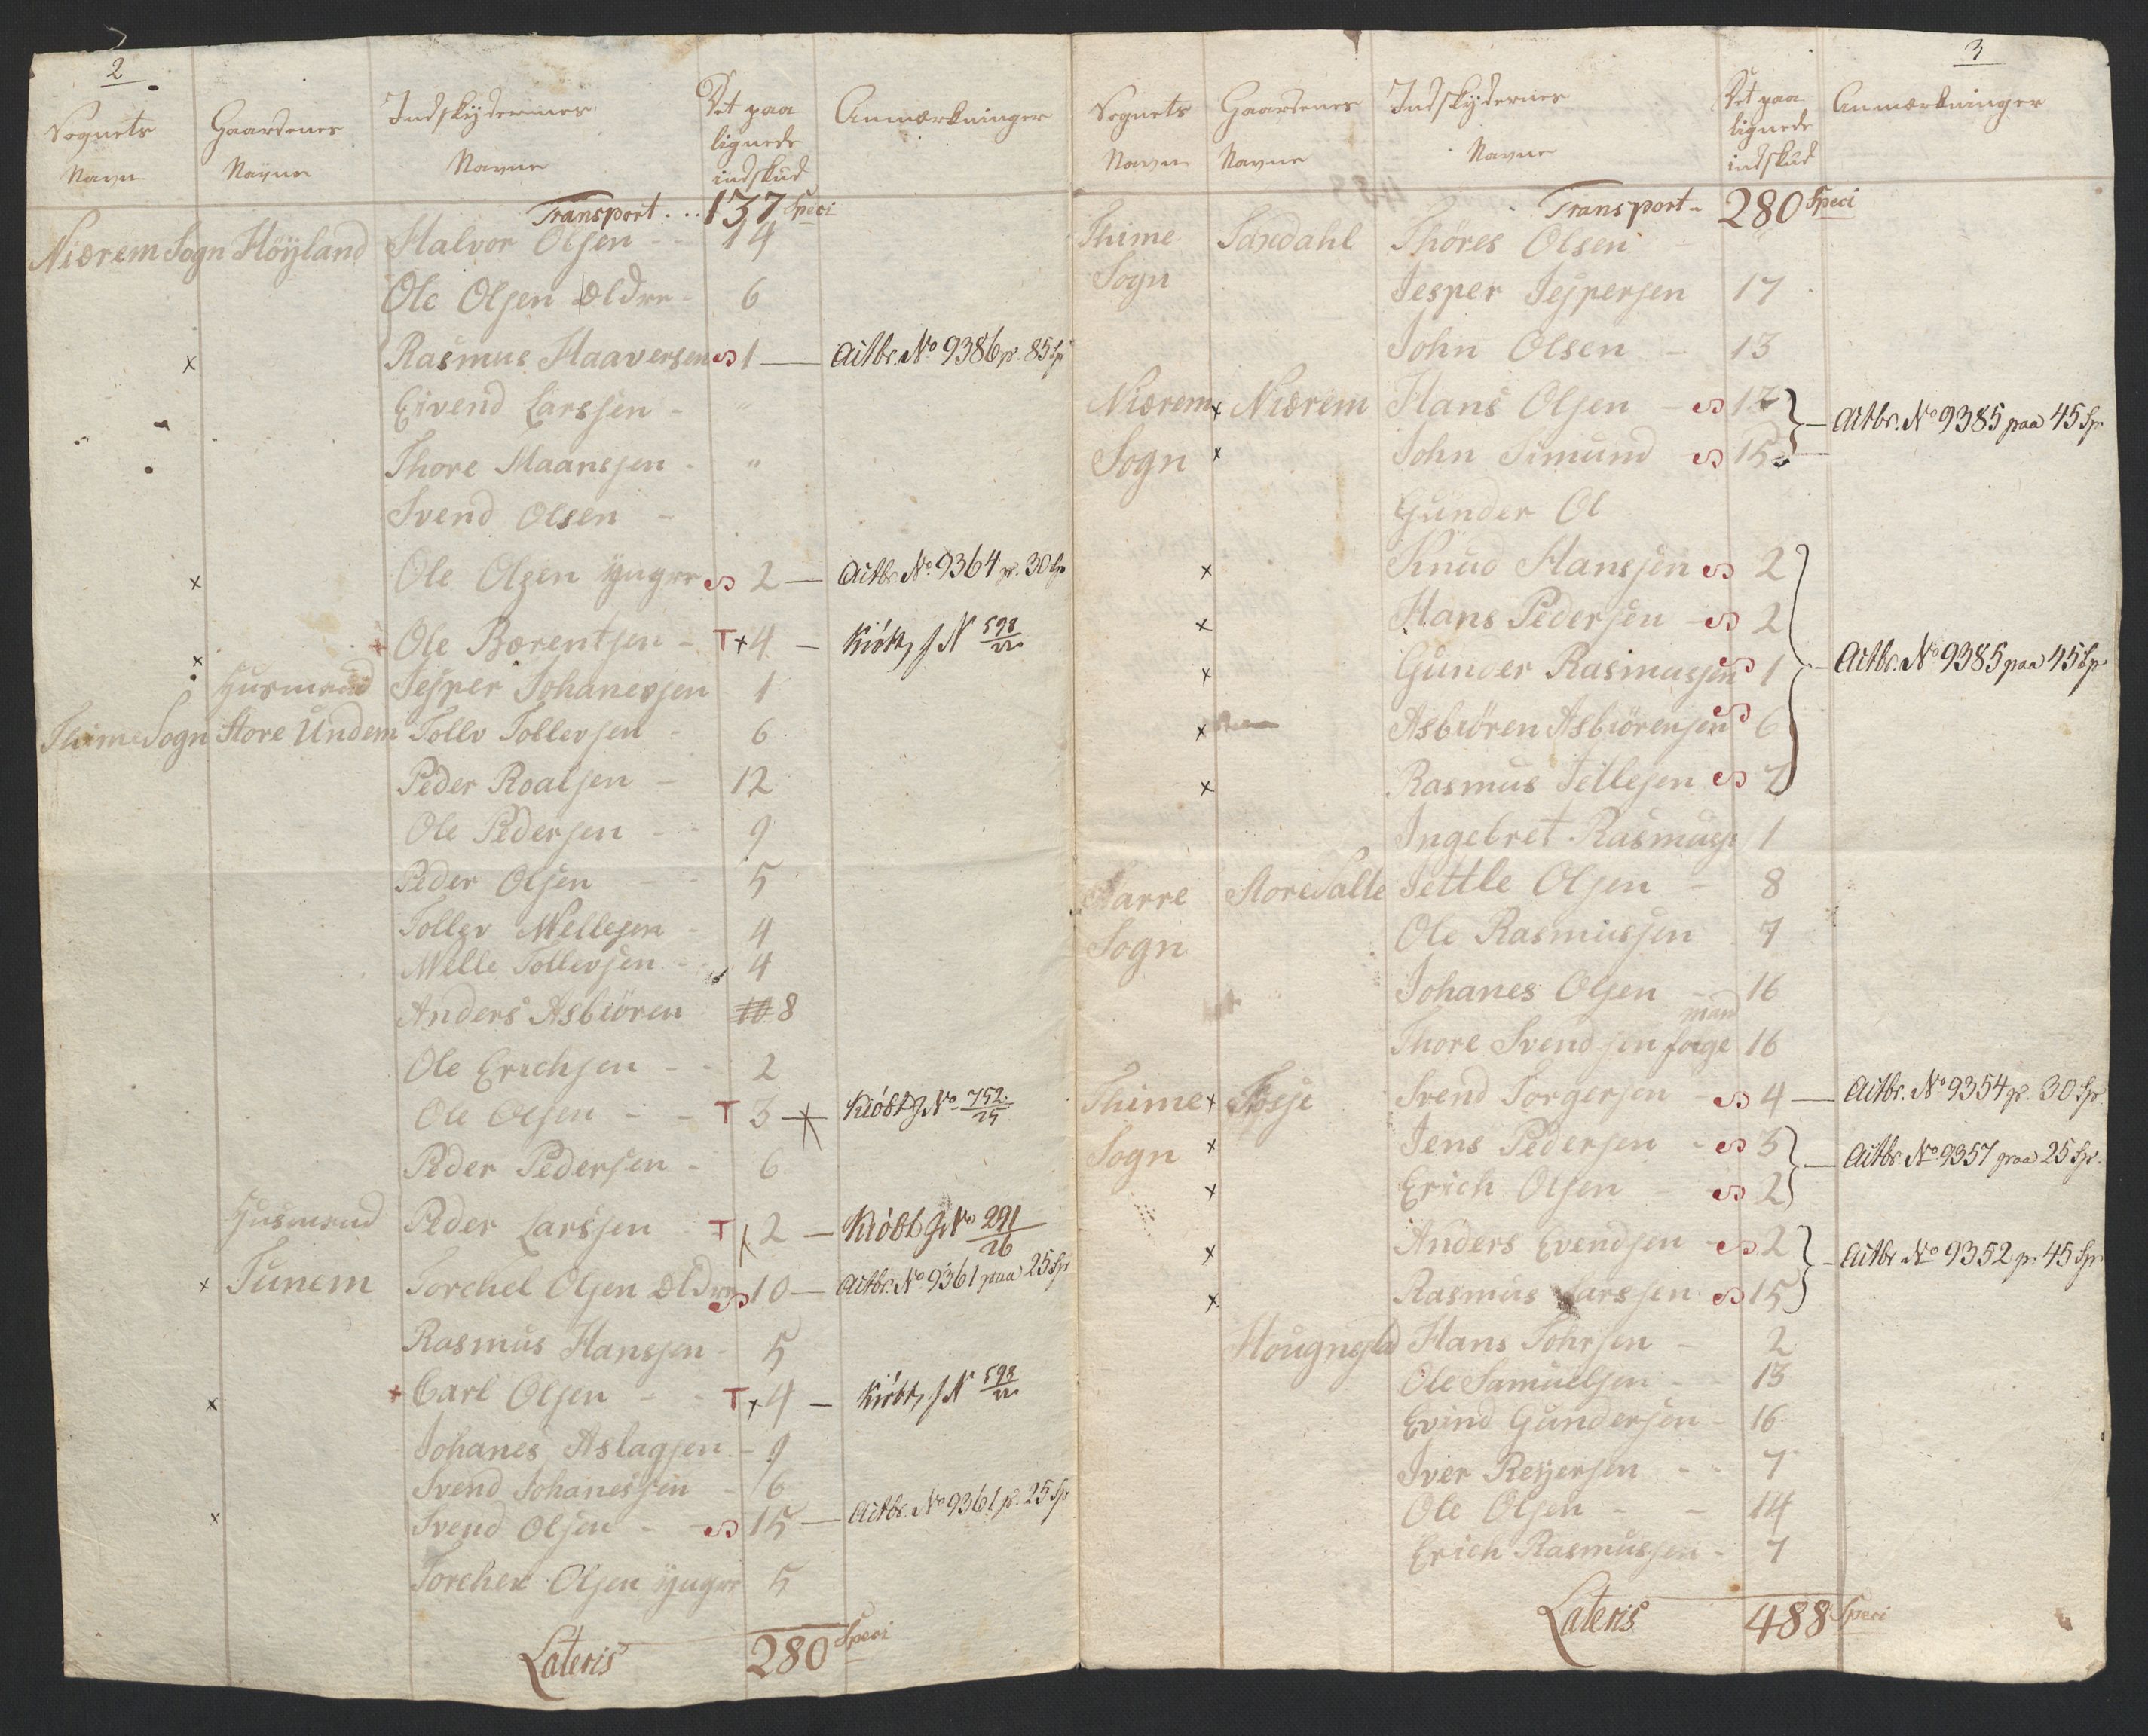 2
Sognets Navn Gaardenes Navne Indskydernes Navne Det paa lignede indskud Anmærkninger
Transport . . . 137 Speci
Niærem Sogn Höyland Halvor Olsen - - 14
Ole Olsen ældre - 6
x Rasmus Haaversen 1 — Actbr. No 9386 pr. 85 Sp
Eivend Larssen - "
Thore Maanssen - "
Svend Olsen -
x Ole Olsen yngre 2 — Actbr. No. 9364 pr. 30 Sp
x + Ole Bærentsen - T + 4 — Kiöbt, J N 598/22
Husmænd Jesper Johanessen 1
Thime Sogn Store Undem Tollv Tollevsen - 6
Peder Roalsen - 12
Ole Pedersen - - 9
Peder Olsen - - 5
Tollev Mellesen - 4
Melle Tollevsen - - 4
Anders Asbiören 10 8
Ole Erichsen - - 2
Ole Olsen - - T 3 x Kiöbt J No 752/25
Peder Pedersen - 6
Husmænd Peder Larssen T 2 — Kiöbt J No 291/26
x Tunem Torchel Olsen ældre 10 — Actbr. No 9361 paa 25 Sp
Rasmus Hanssen - 5
x + Carl Olsen - - T + 4 — Kiöbt, J N 598/22
Johanes Aslagsen - 9
Svend Johanessen - 6
x Svend Olsen - - 15 — Actbr. No 9361 pr. 25 Sp
Torchel Olsen yngre 5
Lateris 280 Speci
3
Sognets Navn Gaardenes Navne Indskydernes Navne Det paa lignede indskud Anmærkninger
Transport - 280 Speci
Thime Sogn Sandahl Thores Olsen -
Jesper Jespersen 17
John Olsen - 13
Niærem Sogn x Niærem Hans Olsen - 17 } — Actbr. No 9385 paa 45 Sp
x John Simund 15
Gunder Ol
x Knud Hanssen 2
x Hans Pedersen - 2
x Gunder Rasmussen 1 } — Actbr. No 9385 paa 45 Sp
x Asbiören Asbiörensen 6
x Rasmus Jellesen 7
Ingebret Rasmuss 1
Narre Sogn Store Salte Jettle Olsen - 8
Ole Rasmussen 7
Johanes Olsen - 16
mand
Thore Svendsen forge 16
Thime Sogn x Fosse Svend Torgersen - 4 — Actbr. No 9354 pr. 30 Sp.
x Jens Pedersen - 3 } — Actbr. No 9357 paa 25 Sp.
x Erich Olsen - 2
x Anders Evendsen - 2 } - Actbr No 9352 pr. 45 Sp
x Rasmus Larssen 15
Hougnsld Hans Tohrsen - 2
Ole Samuelsen - 13
Evind Gundersen - 16
Iver Reyersen - - 7
Ole Olsen - - 14
Erich Rasmussen - 7
Lateris 488 Speci